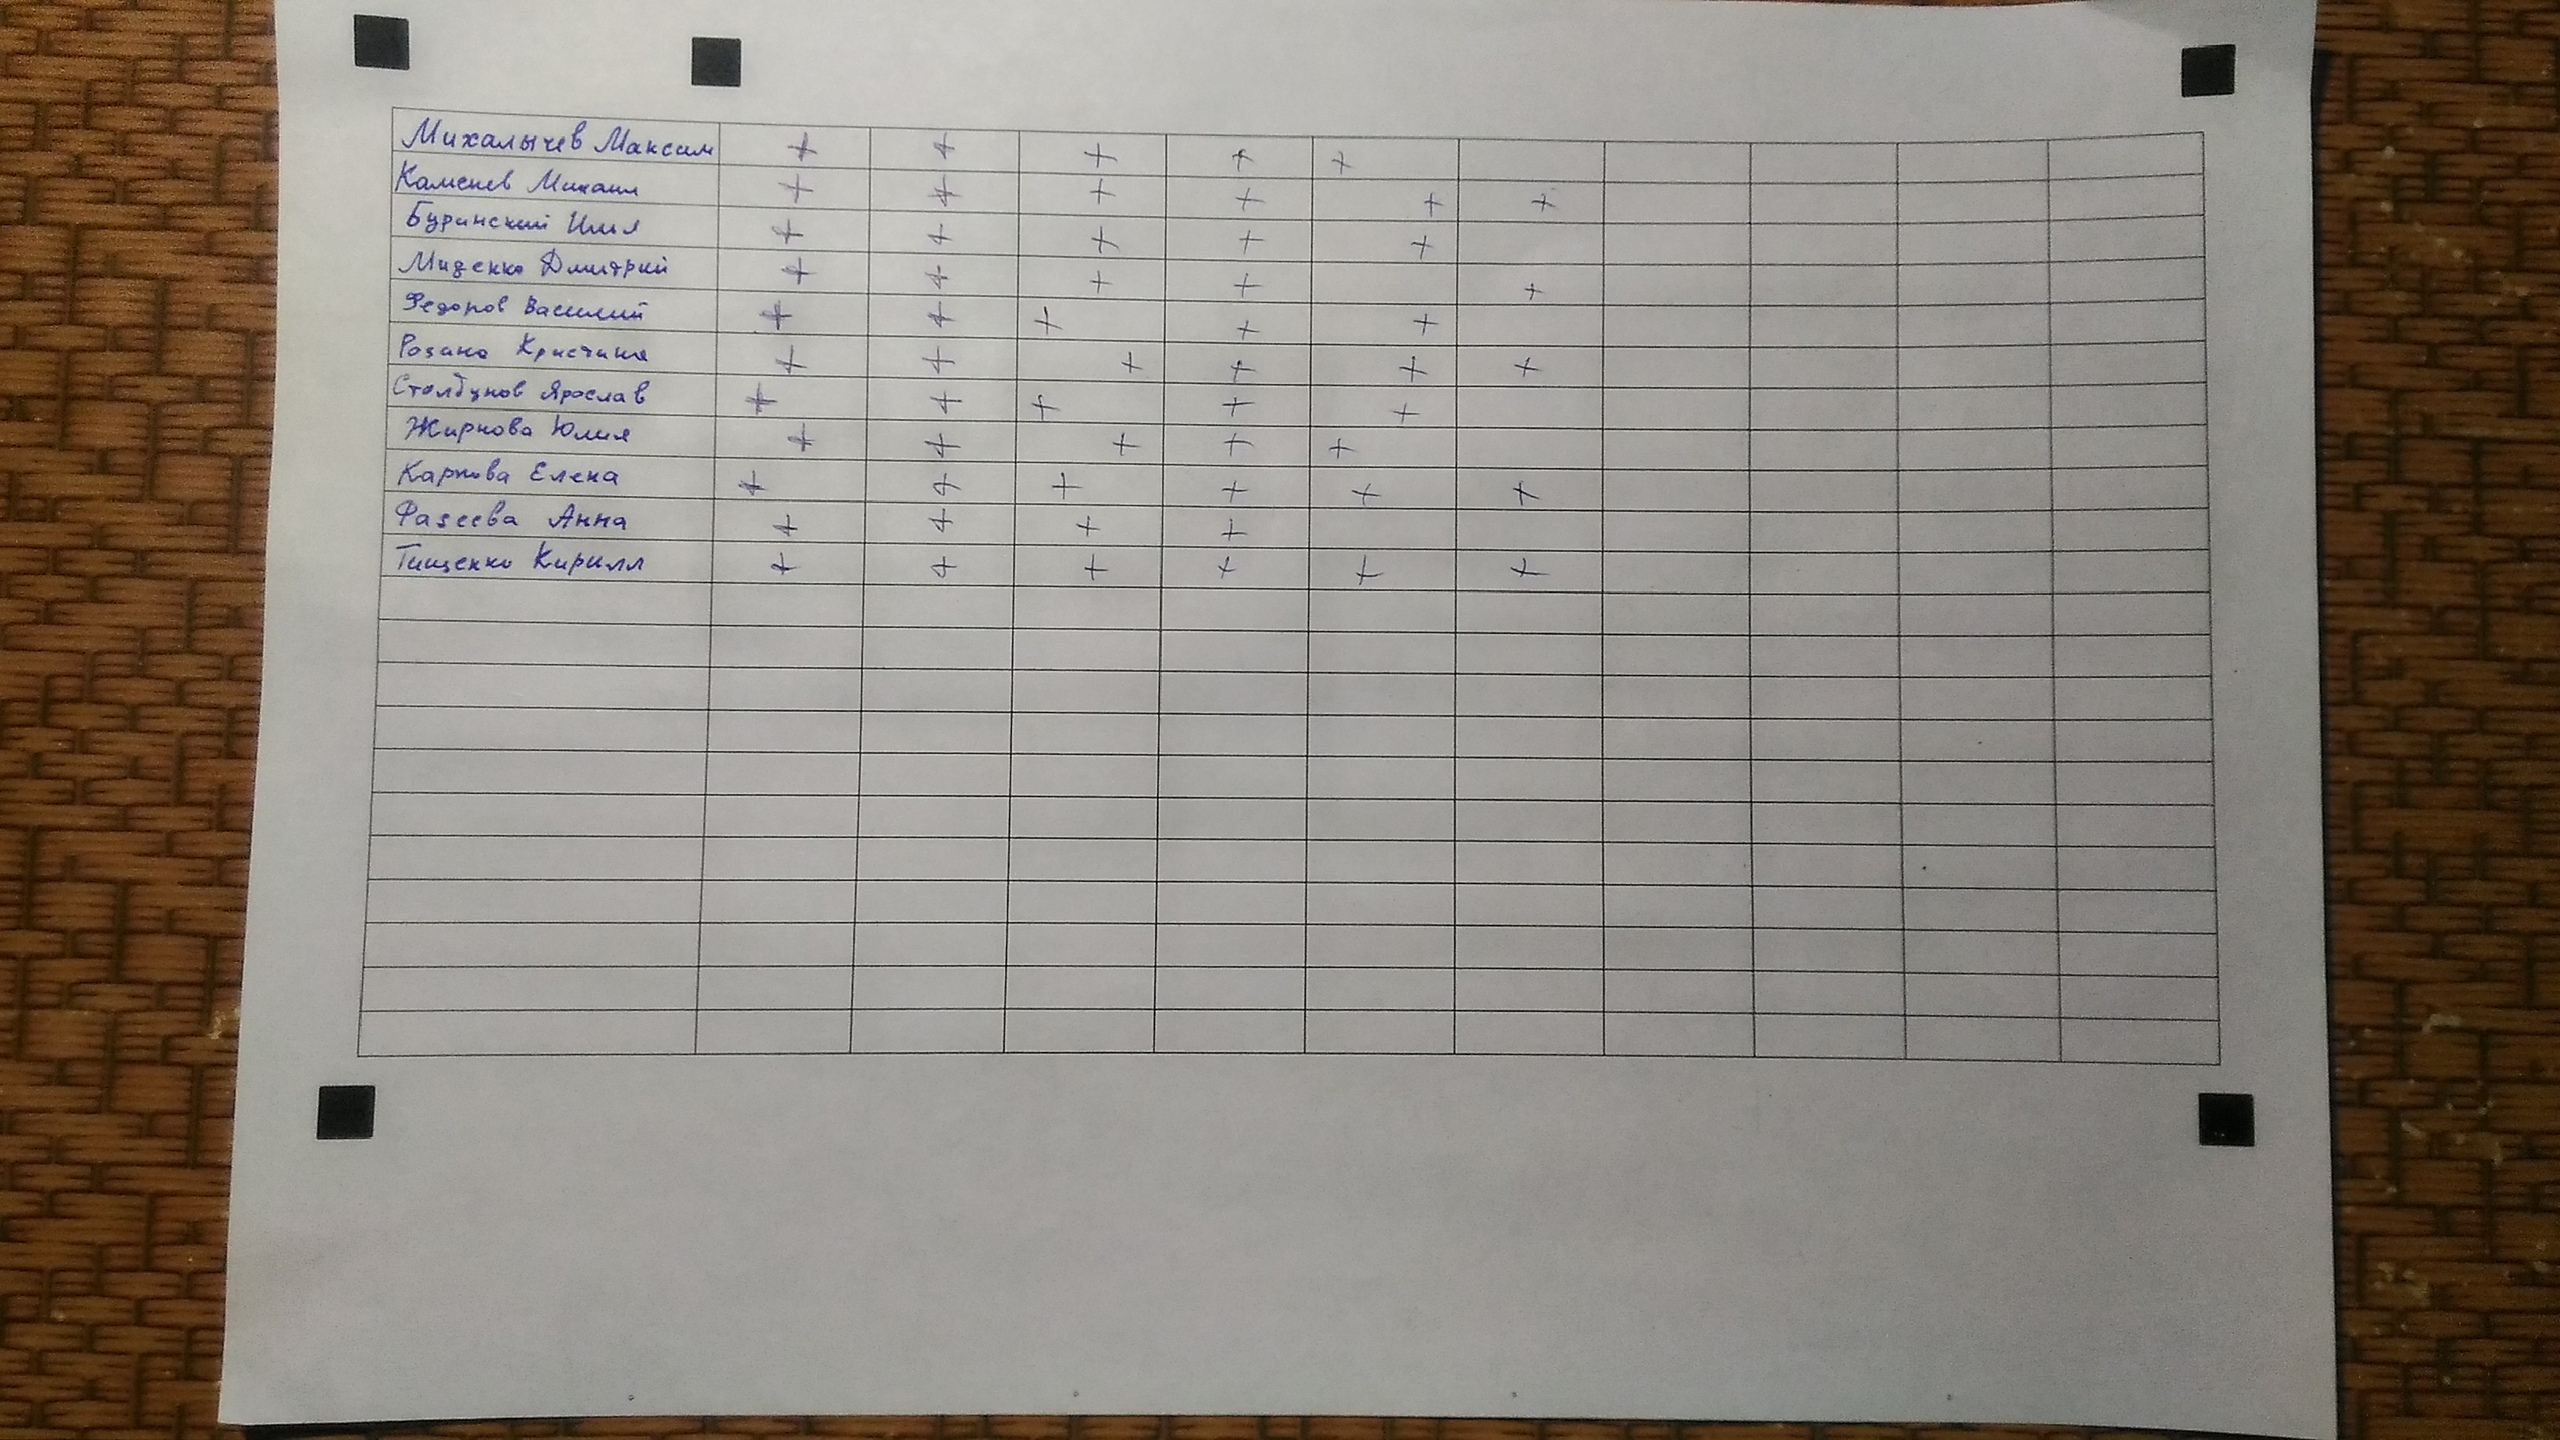 Михалычев Максим + + + + +
Каменев Михаил + + + + + +
Буринский Илья + + + + +
Миденко Дмитрий + + + + +
Федоров Василий + + + + +
Кристина + + + + + +
Столбунов Ярослав + + + + +
Жирнова Юлия + + + + +
Карпова Елена + + + + + +
Фадеева Анна + + + +
Тищенко Кирилл + + + + + +